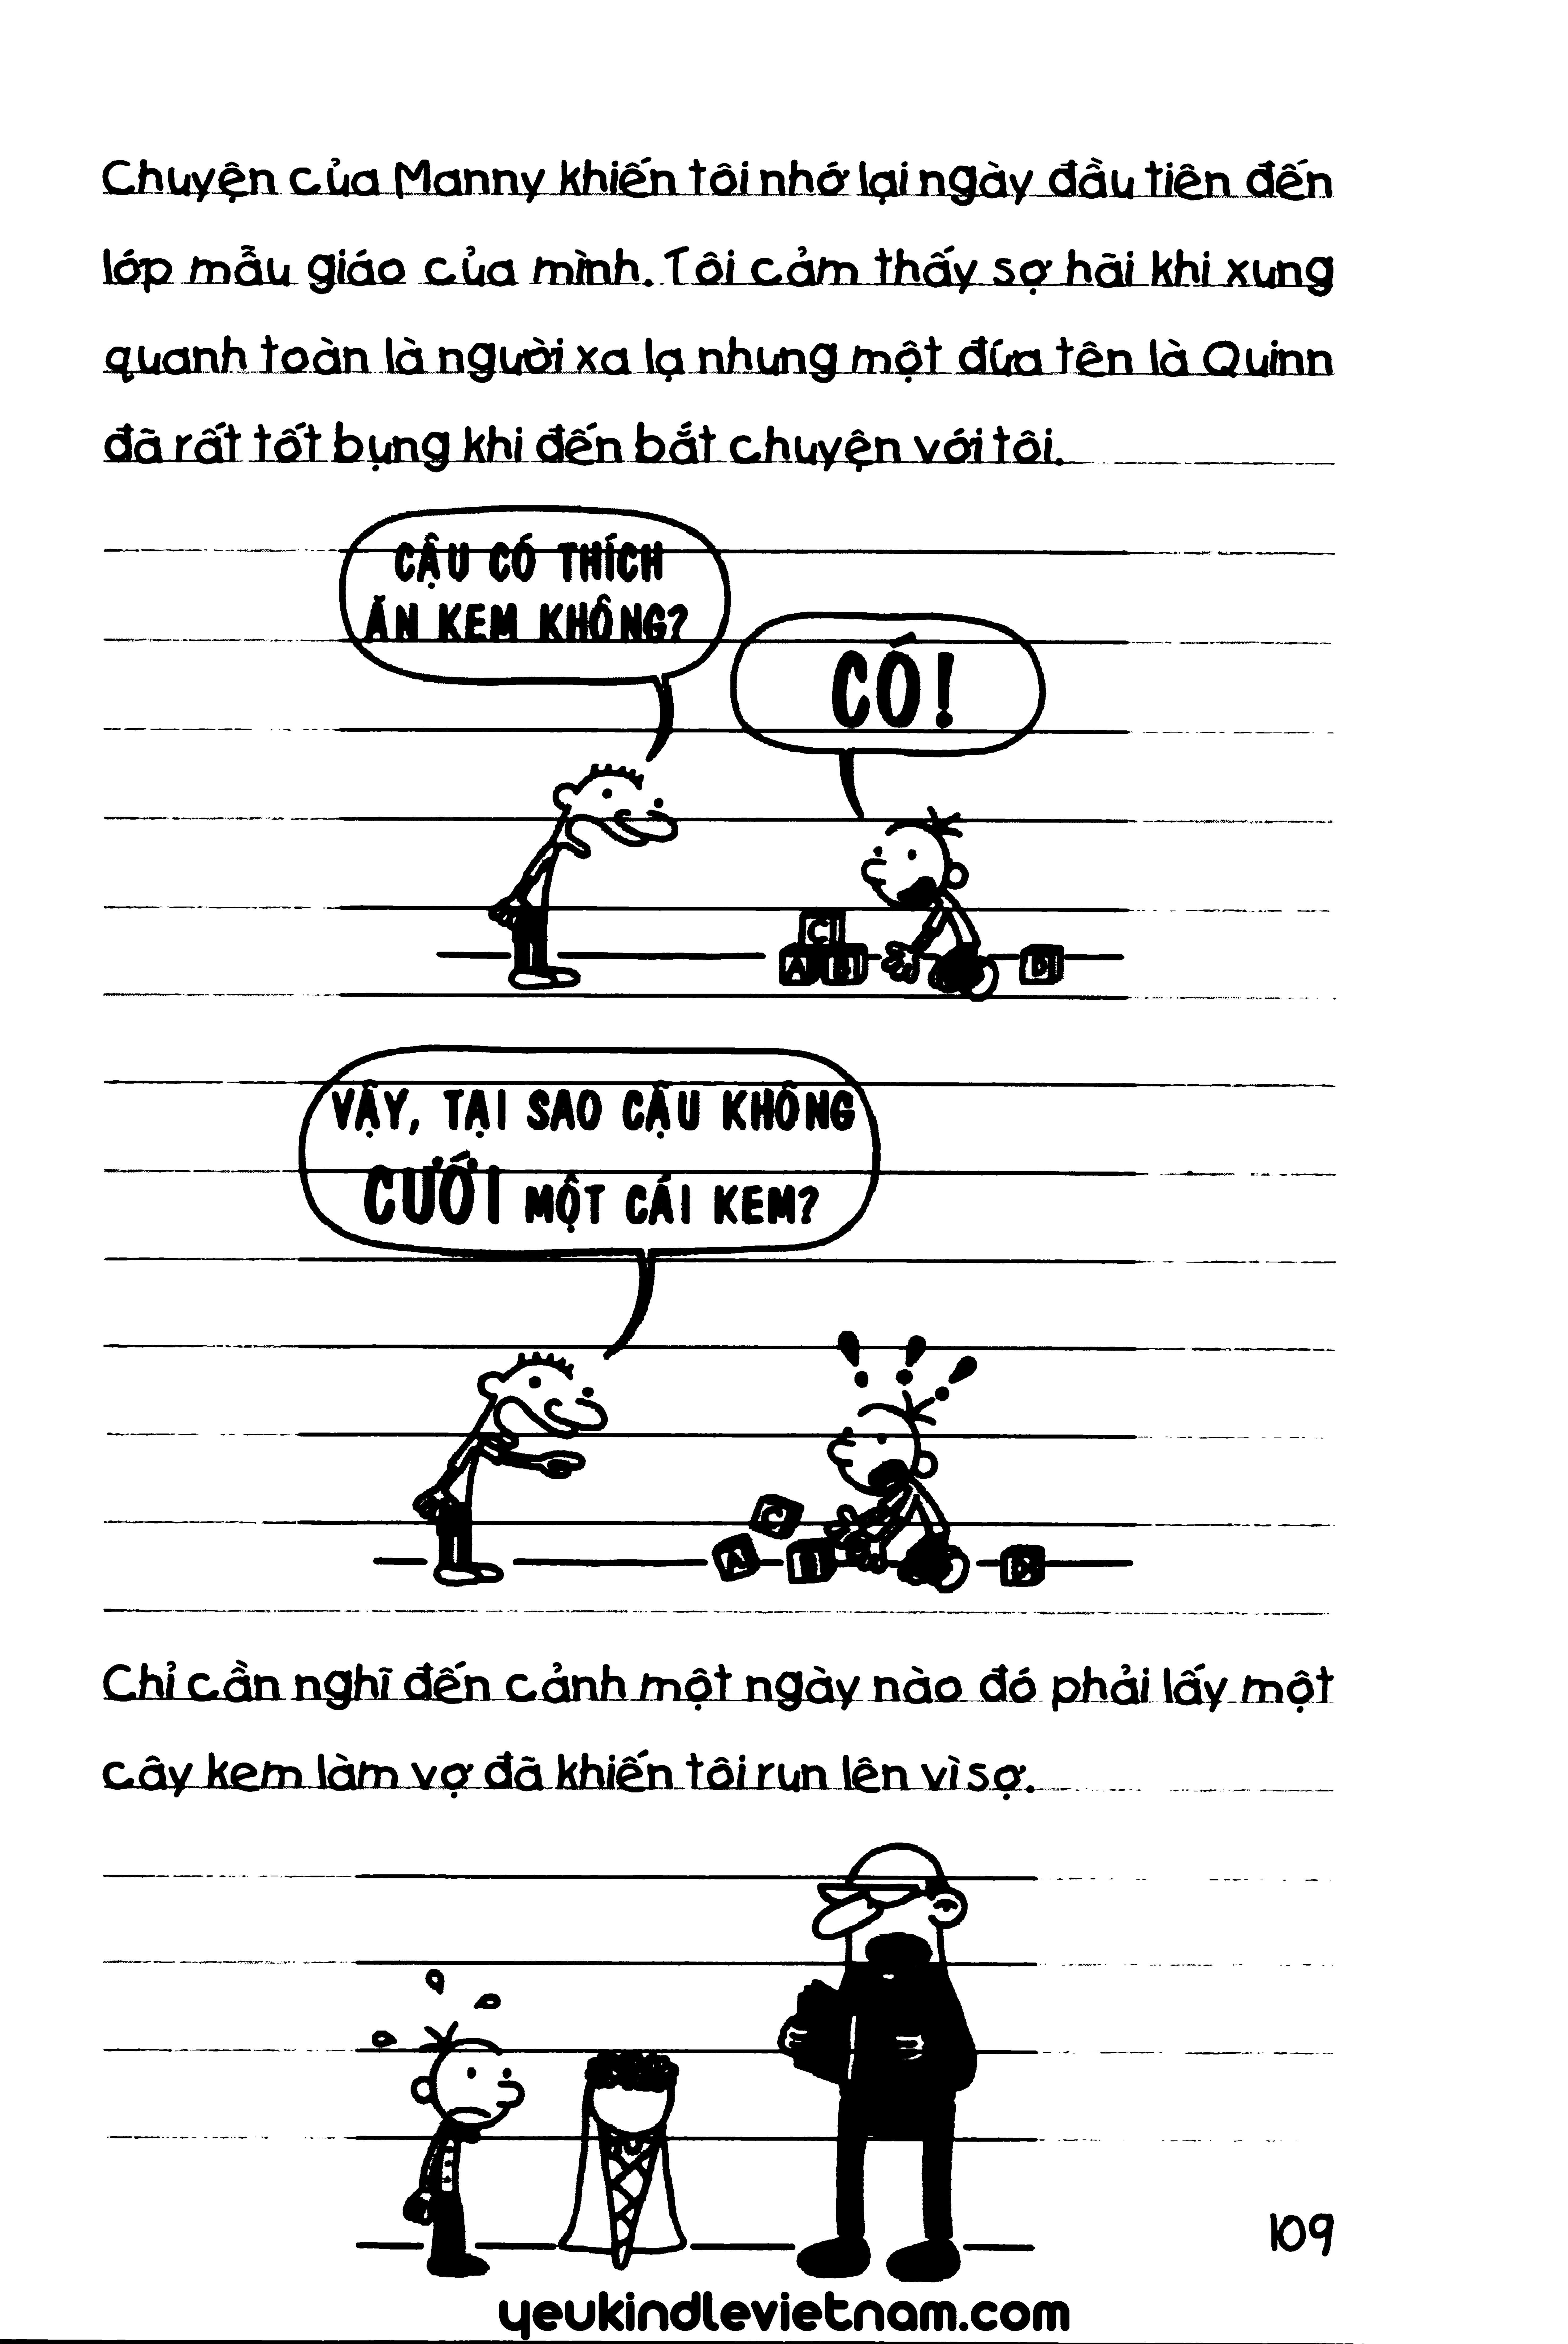 Chuyện của Manny khiến tôi nhớ lại ngày đầu tiên đến
lớp mẫu giáo của mình. Tôi cảm thấy sợ hãi khi xung
quanh toàn là người xa lạ nhưng một đứa tên là Quinn
đã rất tốt bụng khi đến bắt chuyện với tôi.
CẬU CÓ THÍCH
ĂN KEM KHÔNG?
CÓ!
C
A B D
VẬY, TẠI SAO CẬU KHÔNG
CƯỚI MỘT CÁI KEM?
C
A D
Chỉ cần nghĩ đến cảnh một ngày nào đó phải lấy một
cây kem làm vợ đã khiến tôi run lên vì sợ.
109
yeukindlevietnam.com